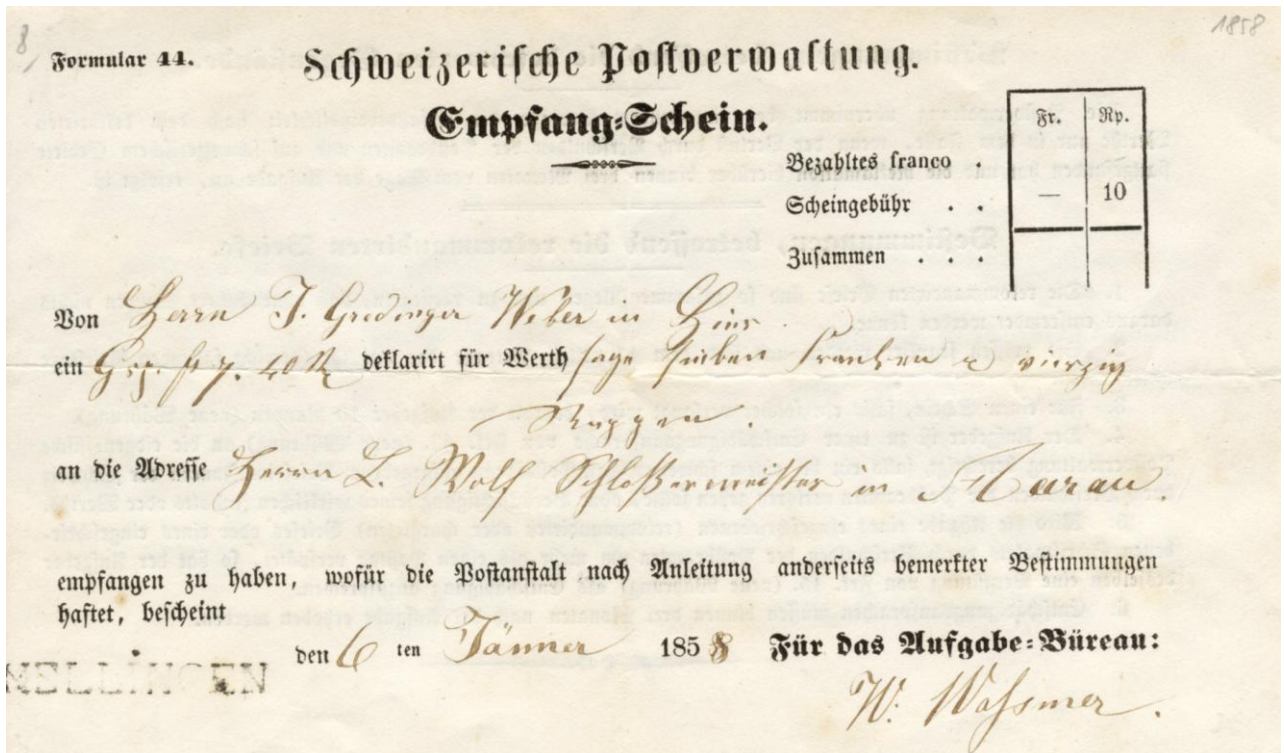 1858
8
Formular 44.
Schweizerische Postverwaltung.
Empfang-Schein.
Fr. Rp.
Bezahltes franco .
Scheingebühr . . — 10
Zusammen . . .
Von Herrn J. Weber in
ein deklarirt für Werth sage sieben Franken & vierzig
Rappen.
an die Adresse Herrn L. Wolf Schloßermeister in Aarau
empfangen zu haben, wofür die Postanstalt nach Anleitung anderseits bemerkter Bestimmungen
haftet, bescheint
den 6 ten Jänner 1858 Für das Aufgabe-Büreau:
MELLINGEN
W. Waßmer.